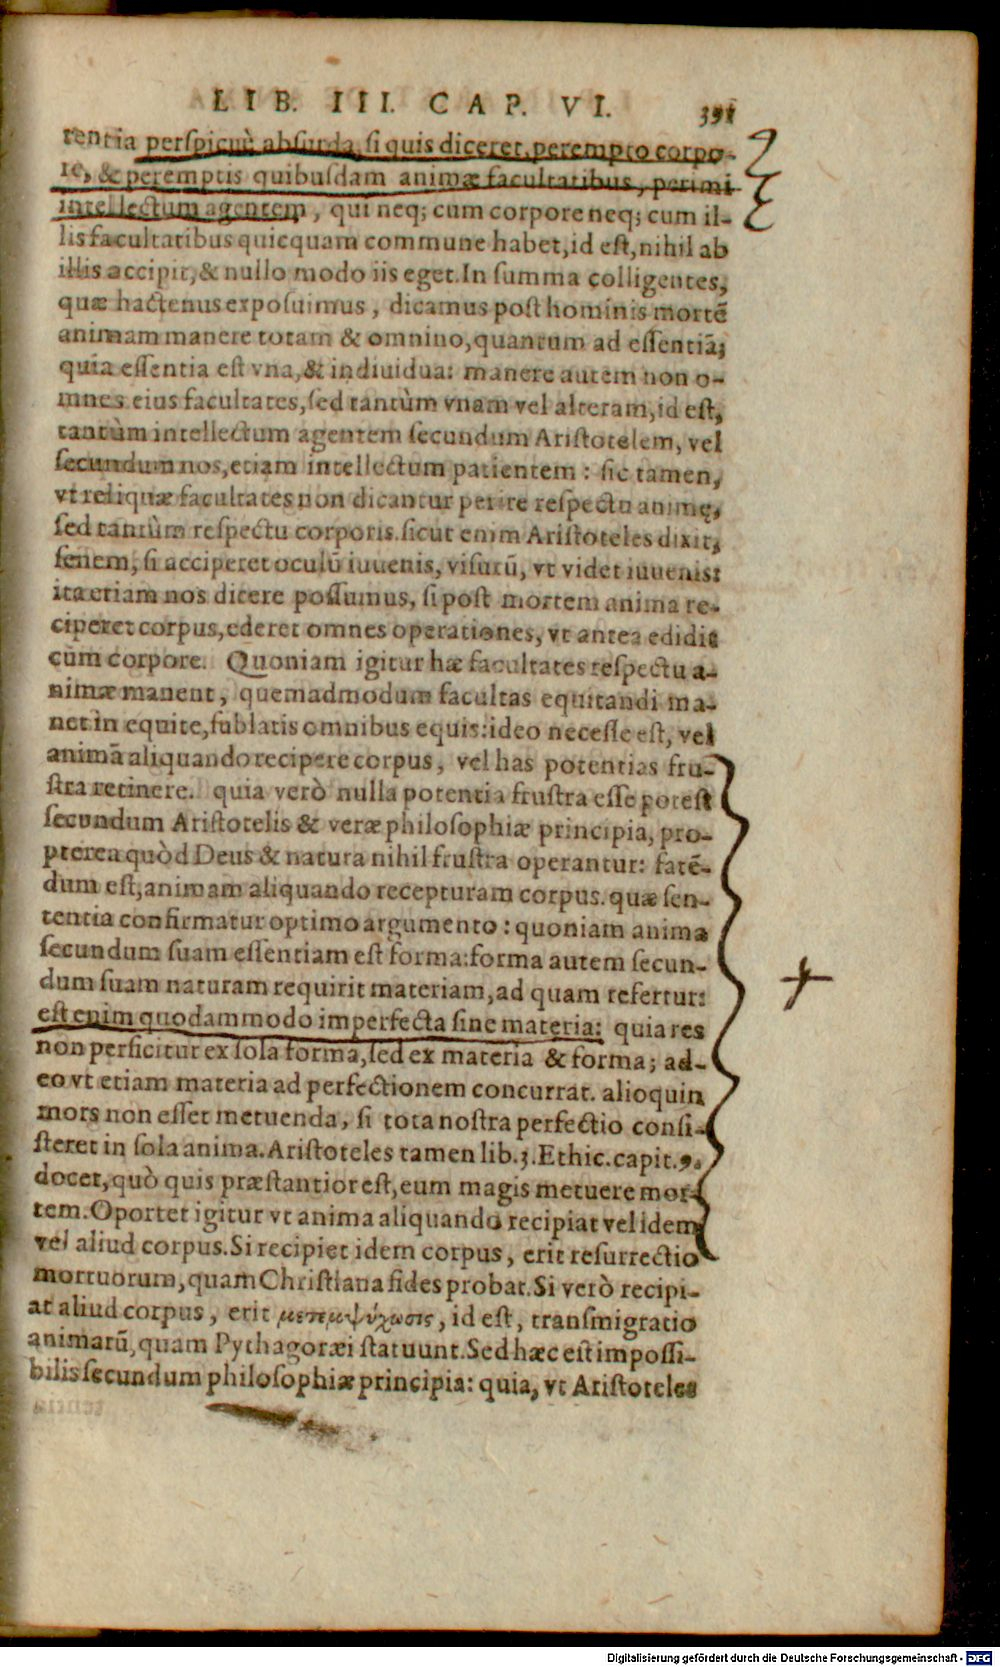 LIB. III. CAP. VI. 391
tentia perspicuè absurda, si quis diceret, perempto corpo-
re, & peremptis quibusdam animæ facultatibus, perimi
intellectum agentem, qui neq; cum corpore neq; cum il-
lis facultatibus quicquam commune habet, id est, nihil ab
illis accipit, & nullo modo iis eget. In summa colligentes,
quæ hactenus exposuimus, dicamus post hominis mortē
animam manere totam & omnino, quantum ad essentiā;
quia essentia est vna, & indiuidua: manere autem non o-
mnes eius facultates, sed tantùm vnam vel alteram, id est,
tantùm intellectum agentem secundum Aristotelem, vel
secundum nos, etiam intellectum patientem: sic tamen,
vt reliquæ facultates non dicantur perire respectu animę,
sed tantùm respectu corporis. sicut enim Aristoteles dixit,
senem, si acciperet oculū iuuenis, visurū, vt videt iuuenis:
ita etiam nos dicere possumus, si post mortem anima re-
ciperet corpus, ederet omnes operationes, vt antea edidit
cum corpore. Quoniam igitur hæ facultates respectu a-
nimæ manent, quemadmodum facultas equitandi ma-
net in equite, sublatis omnibus equis: ideo necesse est, vel
animā aliquando recipere corpus, vel has potentias fru-
stra retinere. quia verò nulla potentia frustra esse potest
secundum Aristotelis & veræ philosophiæ principia, pro-
pterea quòd Deus & natura nihil frustra operantur: fatē-
dum est, animam aliquando recepturam corpus. quæ sen-
tentia confirmatur optimo argumento: quoniam anima
secundum suam essentiam est forma: forma autem secun-
dum suam naturam requirit materiam, ad quam refertur:
est enim quodammodo imperfecta sine materia: quia res
non perficitur ex sola forma, sed ex materia & forma; ad-
eo vt etiam materia ad perfectionem concurrat. alioquin
mors non esset metuenda, si tota nostra perfectio consi-
steret in sola anima. Aristoteles tamen lib. 3. Ethic. capit. 9.
docet, quò quis præstantior est, eum magis metuere mor-
tem. Oportet igitur vt anima aliquando recipiat vel idem
vel aliud corpus. Si recipiet idem corpus, erit resurrectio
mortuorum, quam Christiana fides probat. Si verò recipi-
at aliud corpus, erit μετεμψύχωσις, id est, transmigratio
animarū, quam Pythagoræi statuunt. Sed hæc est impossi-
bilis secundum philosophiæ principia: quia, vt Aristoteles
Digitalisierung gefördert durch die Deutsche Forschungsgemeinschaft - DFG